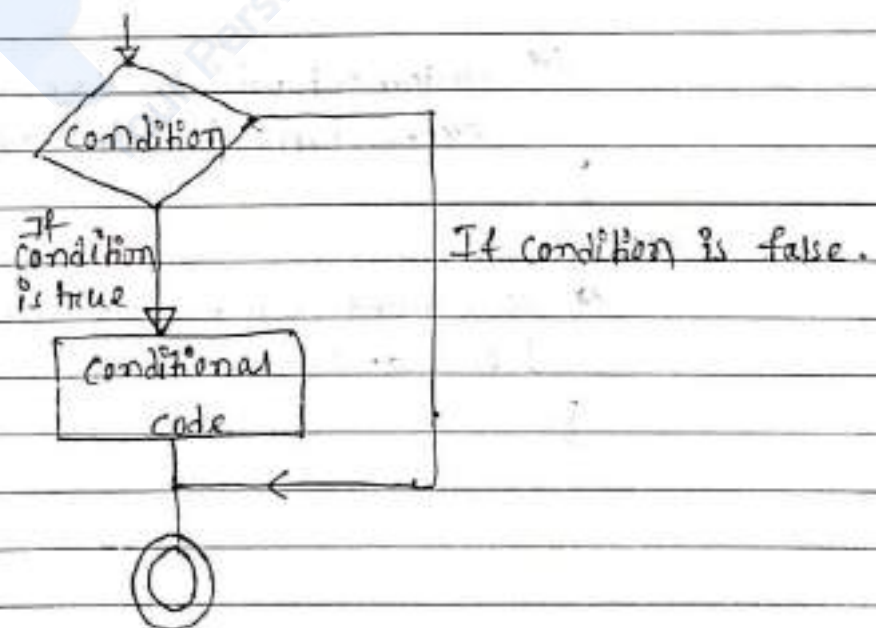 condition
If
condition
is true
If condition is false.
conditional
code